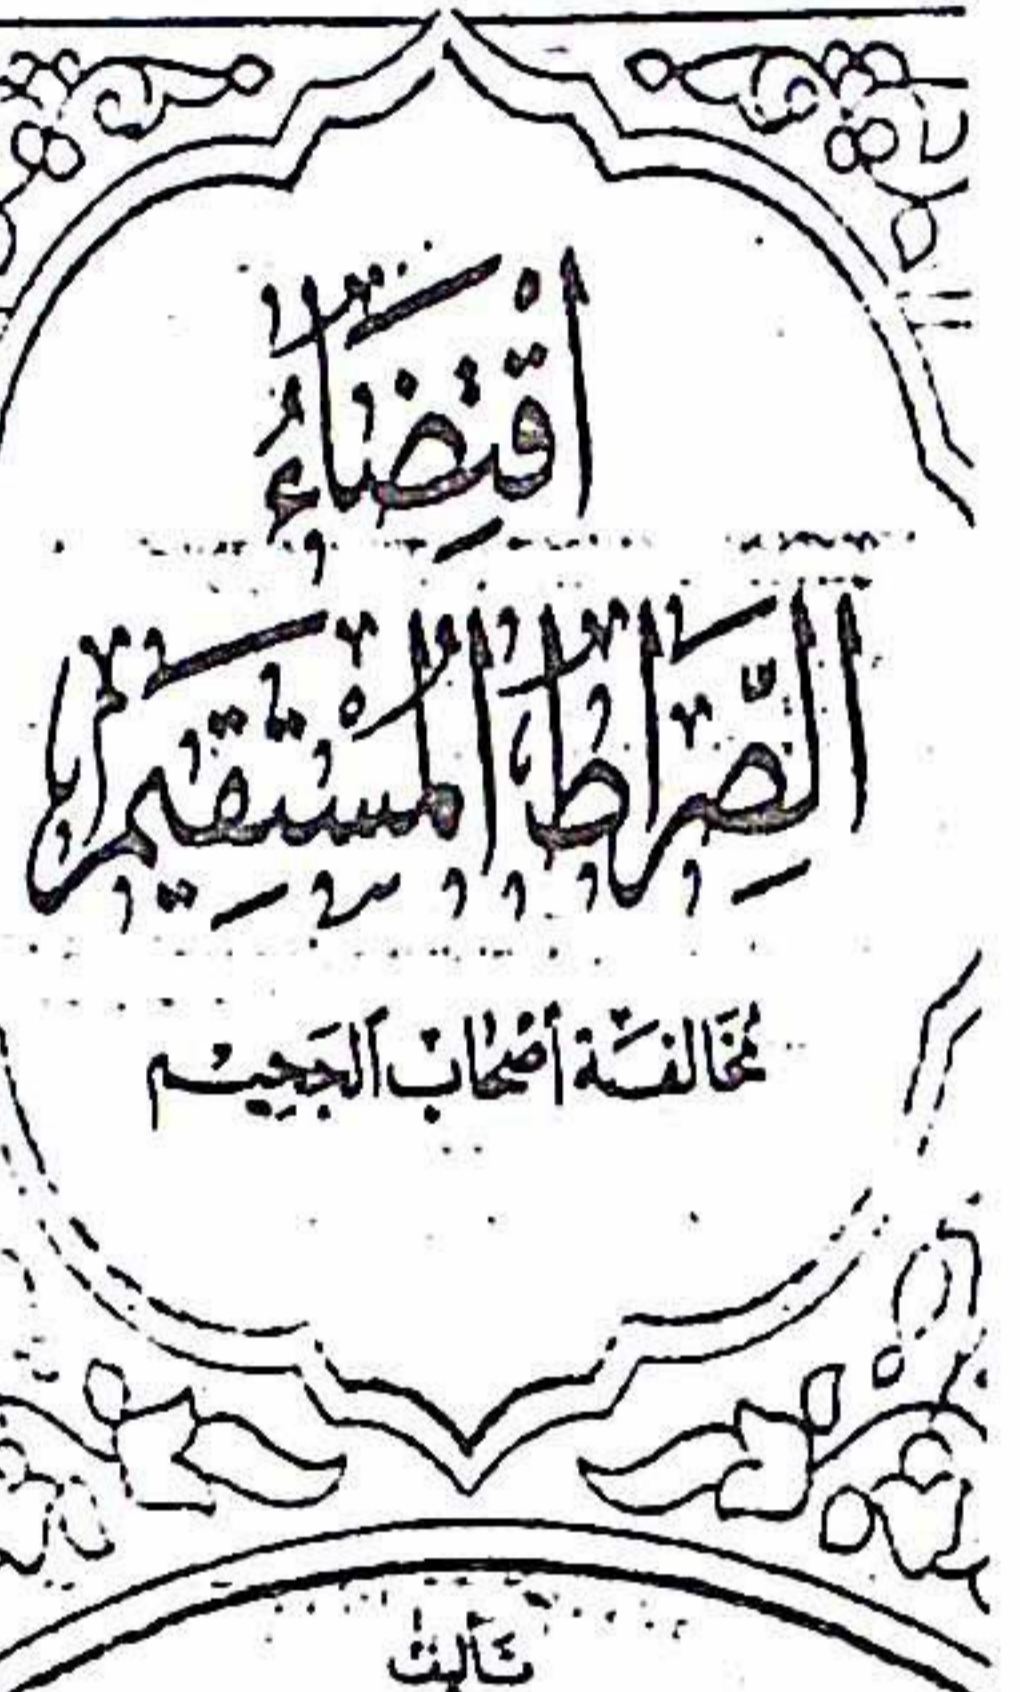 اقْتِضَاءُ
الصِّرَاطِ الْمُسْتَقِيمِ
مُخَالَفَة أَصْحَاب الجَحِيم
تَأليف